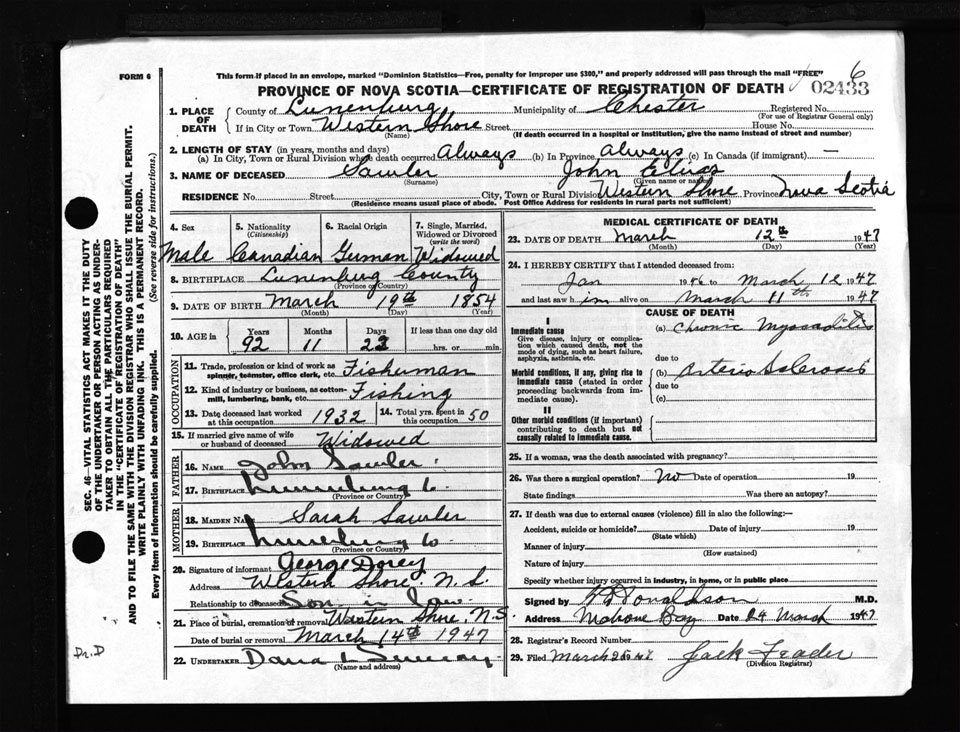 FORM 6
This form if placed in an envelope, marked "Dominion Statistics—Free, penalty for improper use $300," and properly addressed will pass through the mail "FREE"
6
PROVINCE OF NOVA SCOTIA—CERTIFICATE OF REGISTRATION OF DEATH
02433
1. PLACE OF DEATH
County of Lunenburg Municipality of Chester Registered No.
(For use of Registrar General only)
If in City or Town Western Shore Street House No.
(Name) (If death occurred in a hospital or institution, give the name instead of street and number)
2. LENGTH OF STAY (in years, months and days)
(a) In City, Town or Rural Division where death occurred Always (b) In Province Always (c) In Canada (if immigrant) —
3. NAME OF DECEASED Sawler John Elias
(Surname) (Given name or names)
RESIDENCE No. Street City, Town or Rural Division Western Shore Province Nova Scotia
(Residence means usual place of abode. Post Office Address for residents in rural parts not sufficient)
4. Sex 5. Nationality (Citizenship) 6. Racial Origin 7. Single, Married, Widowed or Divorced (write the word)
Male Canadian German Widowed
8. BIRTHPLACE Lunenburg County
(Province or Country)
9. DATE OF BIRTH March 19th 1854
(Month) (Day) (Year)
10. AGE in Years Months Days If less than one day old
92 11 23 hrs. or min.
OCCUPATION
11. Trade, profession or kind of work as spinner, teamster, office clerk, etc. Fisherman
12. Kind of industry or business, as cotton-mill, lumbering, bank, etc. Fishing
13. Date deceased last worked at this occupation 1932 14. Total yrs. spent in 50
15. If married give name of wife or husband of deceased Widowed
FATHER
16. NAME John Sawler
17. BIRTHPLACE Lunenburg Co
(Province or Country)
MOTHER
18. MAIDEN NAME Sarah Sawler
19. BIRTHPLACE Lunenburg Co
(Province or Country)
20. Signature of informant George Dorey
Address Western Shore. N.S.
Relationship to deceased Son in law
21. Place of burial, cremation or removal Western Shore, N.S
Date of burial or removal March 14th 1947
22. UNDERTAKER Dana
(Name and address)
MEDICAL CERTIFICATE OF DEATH
23. DATE OF DEATH March 12th 1947
(Month) (Day) (Year)
24. I HEREBY CERTIFY that I attended deceased from:
Jan 1946 to March 12 1947
and last saw him alive on March 11th 1947
CAUSE OF DEATH
I
Immediate cause
Give disease, injury or complication which caused death, not the mode of dying, such as heart failure, asphyxia, asthenia, etc.
(a) Chronic Myocarditis
due to
Morbid conditions, if any, giving rise to immediate cause (stated in order proceeding backwards from immediate cause).
(b) Arterio Sclerosis
due to
(c)
II
Other morbid conditions (if important) contributing to death but not causally related to immediate cause.
25. If a woman, was the death associated with pregnancy?
26. Was there a surgical operation? No Date of operation 19
State findings Was there an autopsy?
27. If death was due to external causes (violence) fill in also the following:—
Accident, suicide or homicide? Date of injury 19
(State which)
Manner of injury
(How sustained)
Nature of injury
Specify whether injury occurred in industry, in home, or in public place
Signed by Donaldson M.D.
Address Mahone Bay Date 24 March 1947
28. Registrar's Record Number
29. Filed March 1947 Jack Frader
(Division Registrar)
SEC. 46—VITAL STATISTICS ACT MAKES IT THE DUTY
OF THE UNDERTAKER OR PERSON ACTING AS UNDER-
TAKER TO OBTAIN ALL THE PARTICULARS REQUIRED
IN THE "CERTIFICATE OF REGISTRATION OF DEATH"
AND TO FILE THE SAME WITH THE DIVISION REGISTRAR WHO SHALL ISSUE THE BURIAL PERMIT.
WRITE PLAINLY WITH UNFADING INK. THIS IS A PERMANENT RECORD.
Every item of information should be carefully supplied. (See reverse side for instructions.)
Dr.D